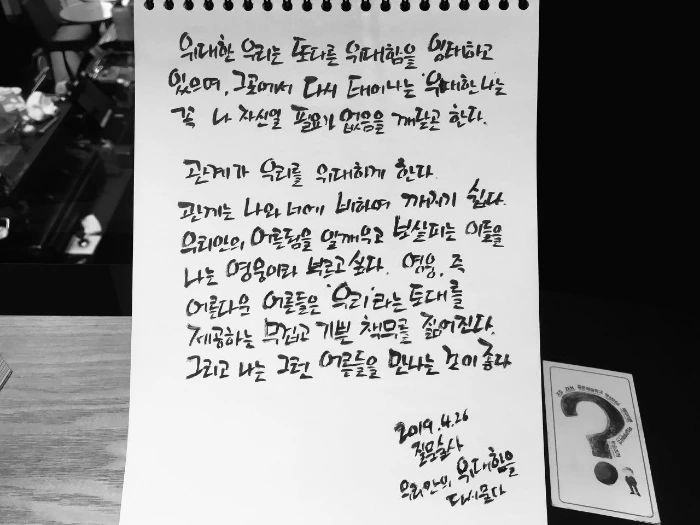 위대한 우리는 또다른 위대함을 잉태하고
있으며, 그곳에서 다시 태어나는 '위대한 나는
꼭 나 자신일 필요가 없음을 깨닫곤 한다.
관계가 우리를 위대하게 한다.
관계는 나와 너에 비하여 깨지기 쉽다.
우리안의 어른됨을 일깨우고 보살피는 이들을
나는 영웅이라 부르고 싶다. 영웅, 즉
어른다운 어른들은 '우리'라는 토대를
제공하는 무겁고 기쁜 책무를 짊어진다.
그리고 나는 그런 어른들을 만나는 것이 좋다
2019.4.26
질문술사
우리안의 위대함을
다시묻다
?